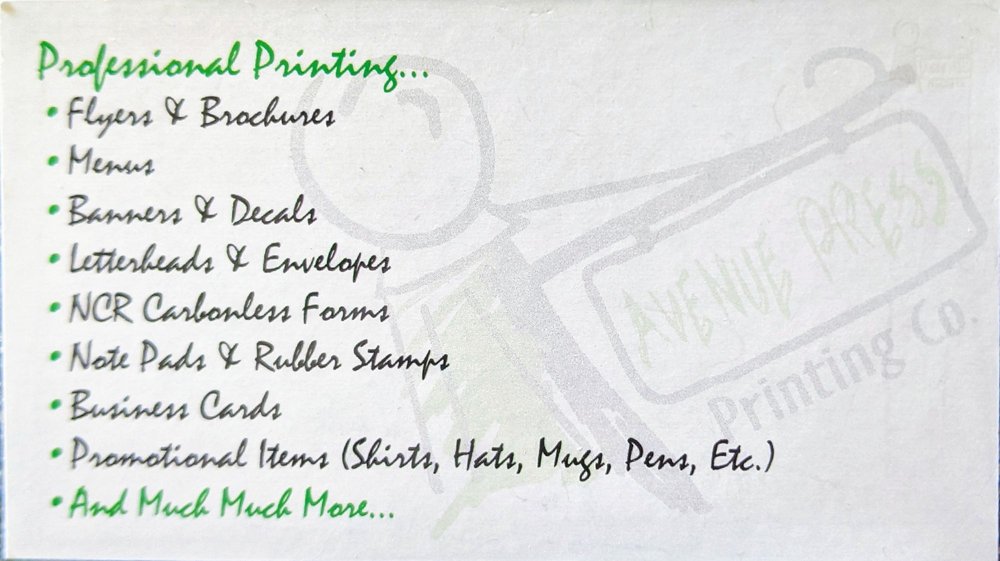 Professional Printing...
• Flyers & Brochures
• Menus
• Banners & Decals
• Letterheads & Envelopes
• NCR Carbonless Forms
• Note Pads & Rubber Stamps
• Business Cards
• Promotional Items (Shirts, Hats, Mugs, Pens, Etc.)
• And Much Much More...
AVENUE PRESS
Printing Co.